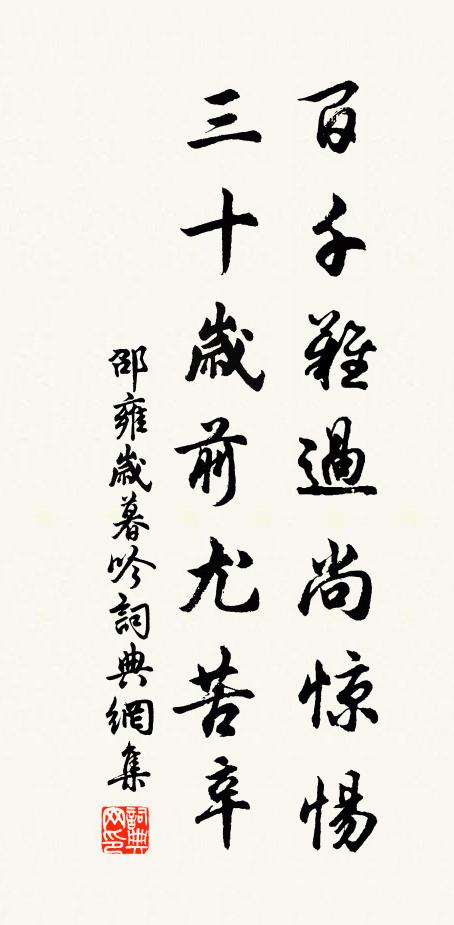 百千難過尚惊惕
三十歲前尤苦辛
邵雍歲暮吟詞典網集
詞典网印